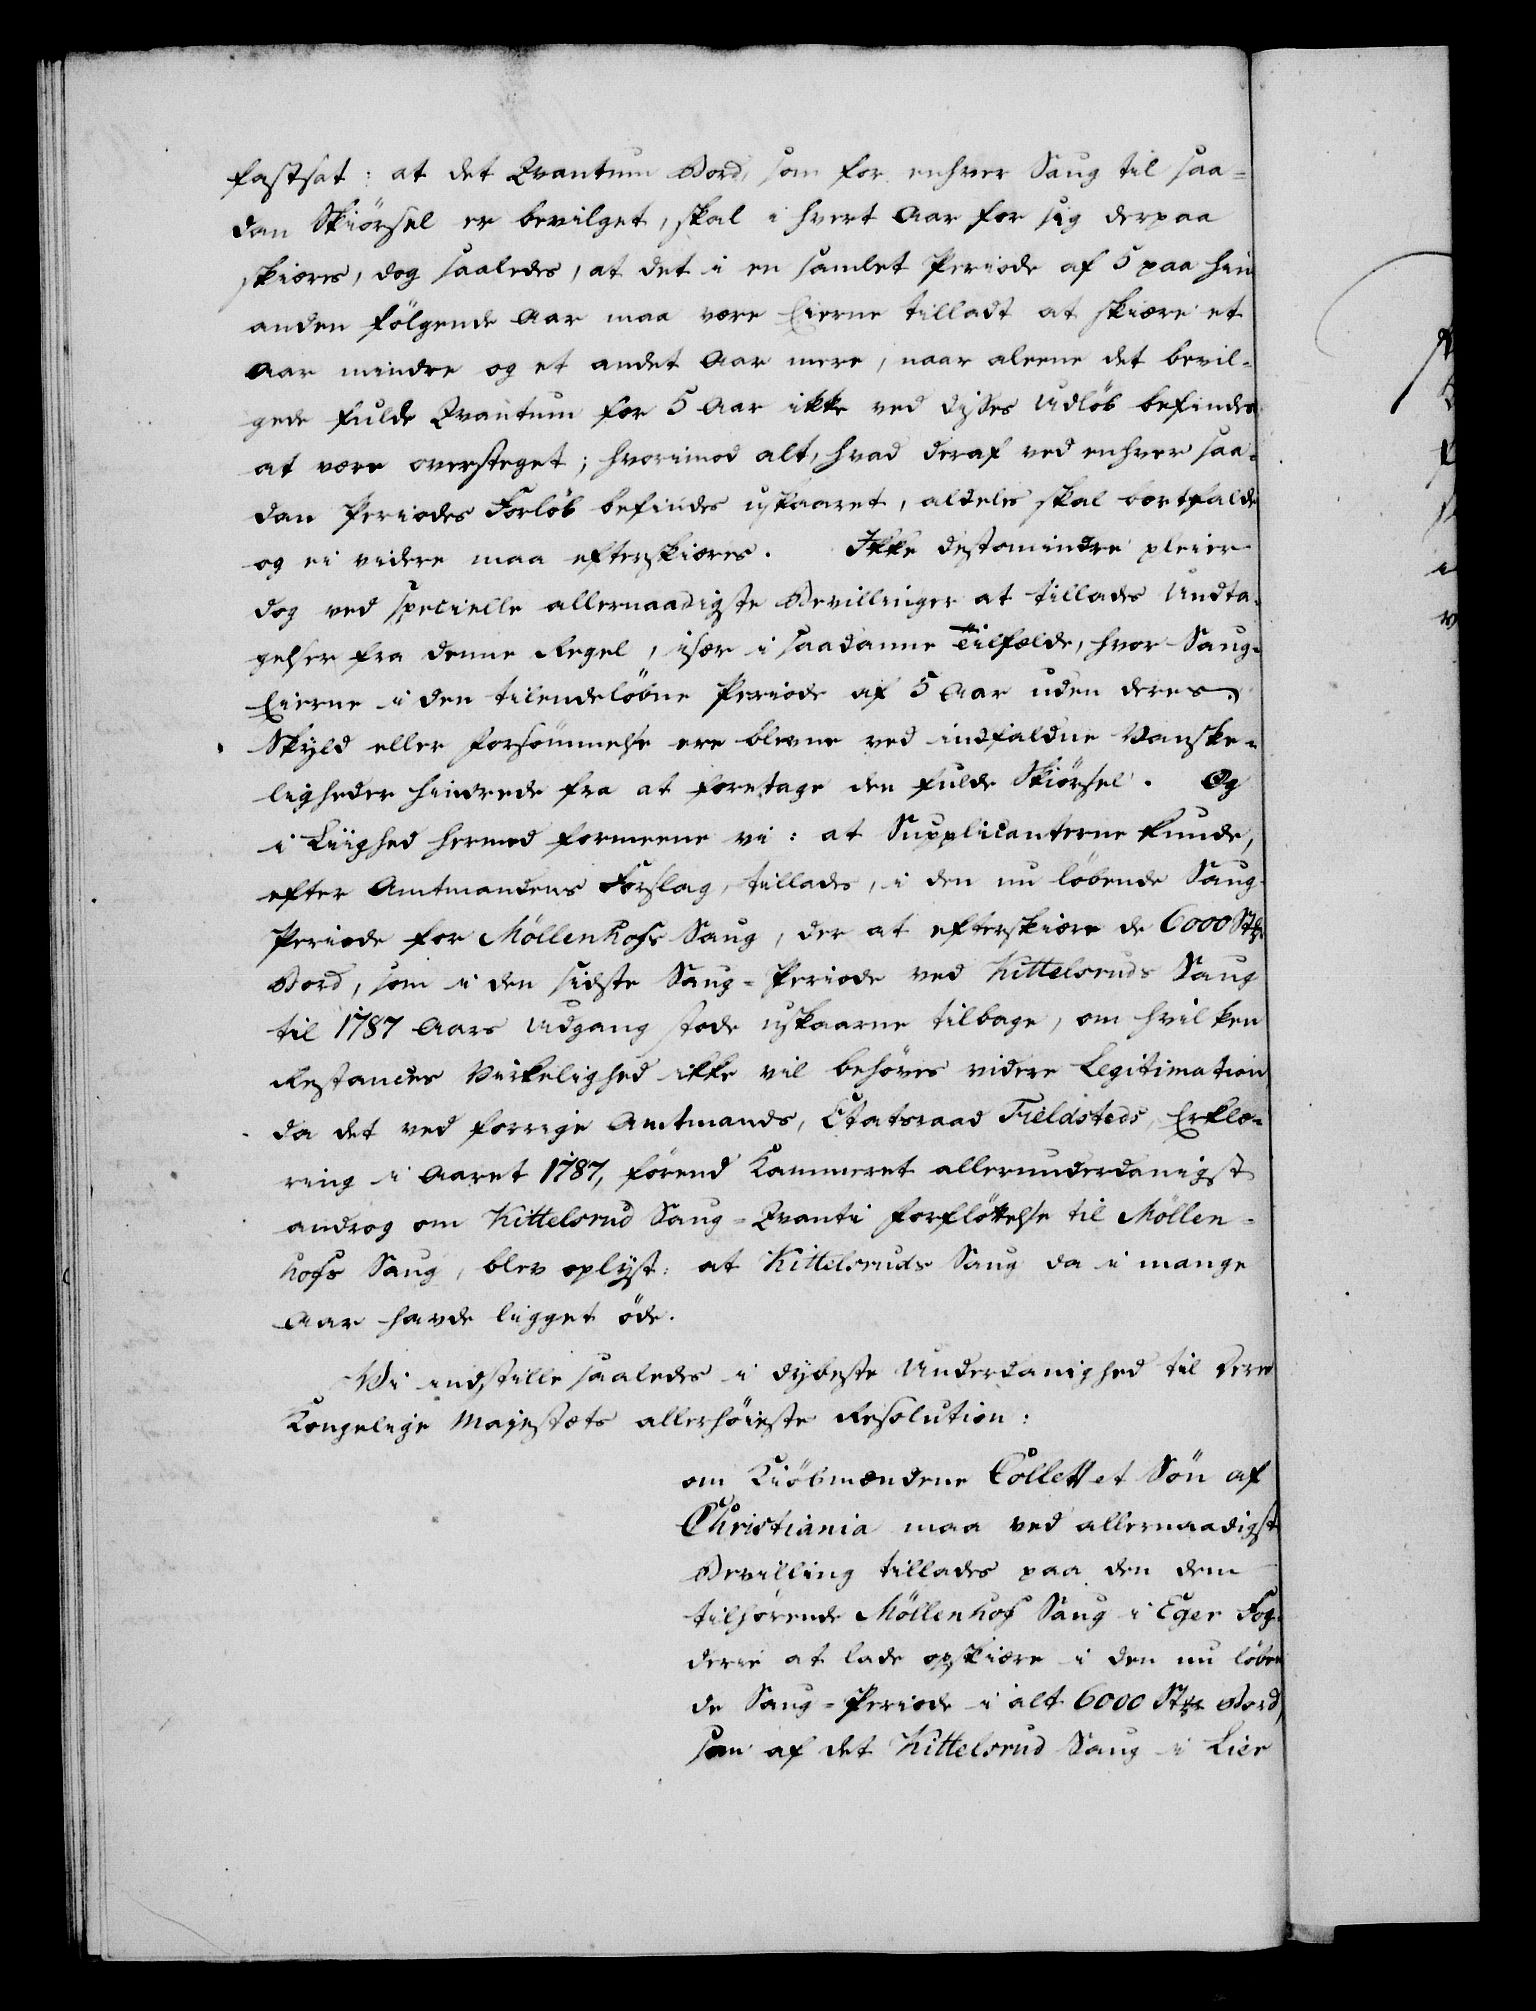 fastsat: at det Qvantum Bord, som for enhver Saug til saa-
dan Skiörsel er bevilget, skal i hvert Aar for sig derpaa
skiæres, dog saaledes, at det i en samlet Periode af 5 paa hin
anden fölgende Aar maa være Eierne tilladt at skiære et
Aar mindre og et andet Aar mere, naar aleene det bevil-
gede fulde Qvantum for 5 Aar ikke ved disses Udlöb befindes
at være oversteget; hvorimod alt, hvad deraf ved enhver saa-
dan Periodes Forlöb befindes uskaaret, aldeles skal bortfalde
og ei videre maa efterskiæres. Ikke destomindre pleier
dog ved specielle allernaadigste Bevillinger at tillades Undta-
gelser fra denne Regel, især i saadanne Tilfælde, hvor Saug-
Eierne i den tilendelöbne Periode af 5 Aar uden deres
Skyld eller Forsömmelse ere blevne ved indfaldne Vanske-
ligheder hindrede fra at foretage den fulde Skiörsel. Og
i Liighed hermed formeene vi: at Supplicanterne kunde,
efter Amtmandens Forslag, tillades, i den nu löbende Saug-
Periode for Möllenhofs Saug, der at efterskiære de 6000 Stkr
Bord, som i den sidste Saug-Periode ved Kittelsruds Saug
til 1787 Aars Udgang stode uskaarne tilbage, om hvilken
Restances Virkelighed ikke vil behöves videre Legitimation
da det ved forrige Amtmands, Etatsraad Fieldsteds, Erklæ-
ring i Aaret 1787, förend Kammeret allerunderdanigst
androg om Kittelsrud Saug-Qvanti Forflöttelse til Möllen-
hofs Saug, blev oplyst: at Kittelsruds Saug da i mange
Aar havde ligget öde.
Vi indstille saaledes i dybeste Underdanighed til Deres
Kongelige Majestæts allerhöieste Resolution:
om Kiöbmændene Collett et Sön af
Christiania maa ved allernaadigst
Bevilling tillades paa den dem
tilhörende Möllenhof Saug i Eger Fog-
derie at lade opskiære i den nu löben
de Saug-Periode i alt 6000 Stkr Bord,
som af det Kittelsrud Saug i Lier